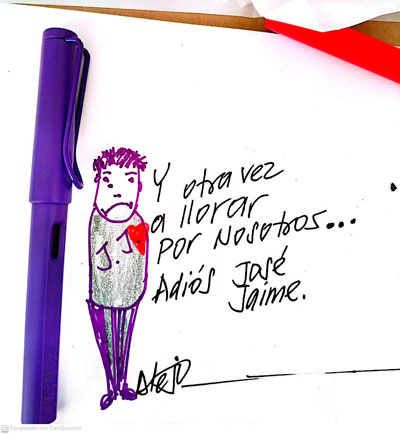 Y otra vez
a llorar
por Nosotros...
Adiós José
Jaime.
J.J.
Alejo
Escaneado con CamScanner